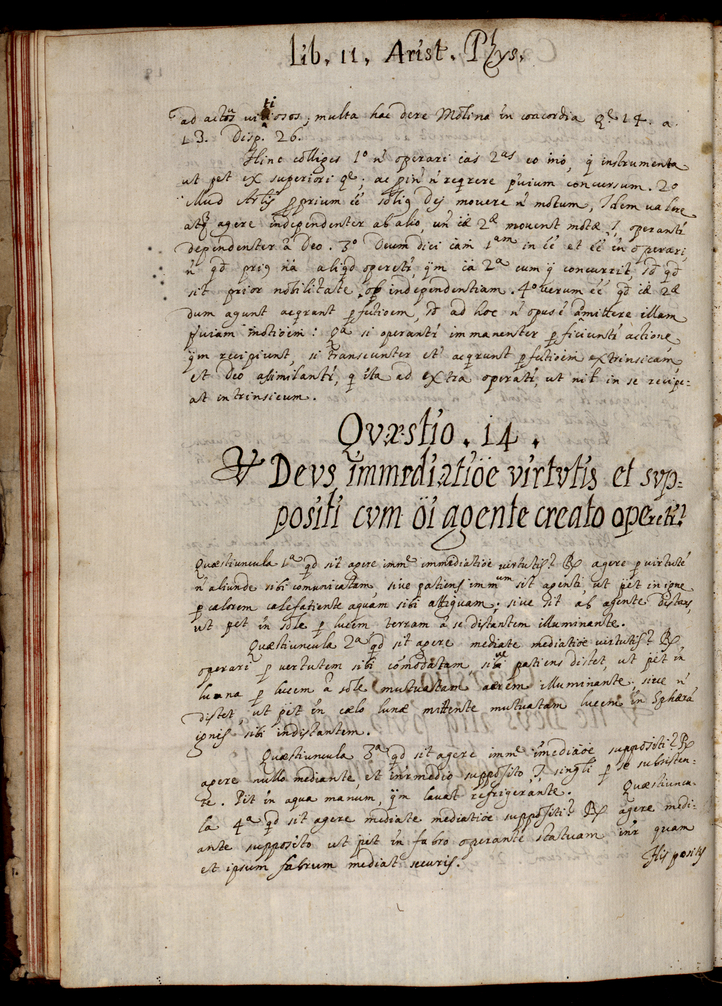 Lib. 11. Arist. Phys.
ad actūs vitiosos; multa hac de re Molina in concordia q. 14. a.
13. Disp. 26.
Hinc colliges 1º n̄ operari cās 2as eo mō, q̄ instrumenta
ut pet ex superiori qe; ac pīn n̄ reqrere pvium concursum. 2º
illud Artis pprium eē solis Dej movere n̄ motum, Idem valere
atq agere independenter ab alio, un̄ cæ 2æ movent motæ, i, operantr
dependenter à Deo. 3º Deum dici cām 1am in eē et eē in operari,
n̄ qd prius nā aliqd operetr, qm cā 2a cum q̄ concurrit, sd qd
sit prior nobilitate, ob independentiam. 4º verum eē qd cæ 2æ
dum agunt acqrant pfectioem, sd ad hoc n̄ opus ē admittere illam
pviam motioem: Qa si operantr immanenter pficiuntr actione
qm recipiunt, si transeunter et acqrunt pfectioem extrinsecam
et Deo asimilantr, q ita ad extra operatr, ut nil in se recipi-
at intrinsecum.
Qvæstio. 14.
V Devs immediatiōe virtvtis et svp-
positi cvm ōi agente creato operetr?
Quæstiuncula 1a qd sit agere imme immediatiōe virtutis? R agere p virtutē
n̄ aliunde sibi comunicatam sive patiens immum sit agenti, ut pet in igne
p calorem calefatiente aquam sibi attiguam; sive sit ab agente distans,
ut pet in sole p lucem terram à se distantem illuminante.
Quæstiuncula 2a qd sit agere mediate mediatiōe virtutis? R
operari p vertutem sibi comōdatam sive patiens distet, ut pet in
luna p lucem à sole mutuatam aerem illuminante. sive n̄
distet ut pet in cælo lunæ mittente mutuatam lucem in Sphæra
ignis sibi indistantem.
Quæstiuncula 3a qd sit agere imme imediaōe suppositi? R
agere nullo mediante et inrmedio supposito, i, singli p se subsisten-
te. Pet in aqua manum, qm lavat refrigerante. Quæstiuncu-
la 4a qd sit agere mediate mediatiōe suppositi? R agere medi-
ante supposito ut pet in fabro operante statuam inr quam
et ipsum fabrum mediat securis. His positis